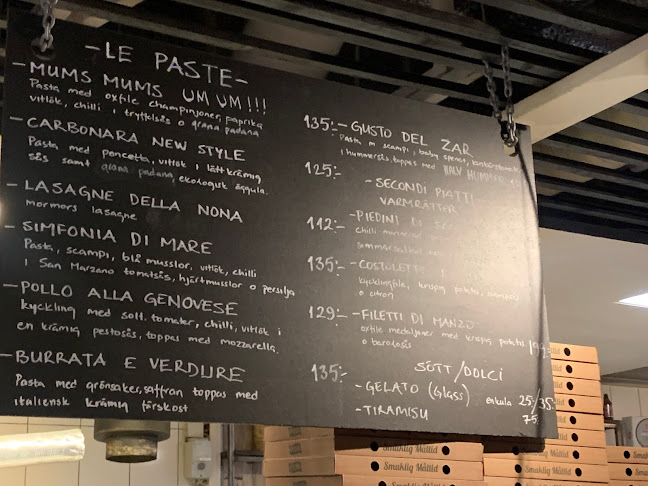 -LE PASTE-
-MUMS MUMS UM UM!!!
Pasta med oxfile champinjoner, paprika
vitlök, chilli i tryffelsås o grana padana
135:-
-CARBONARA NEW STYLE
Pasta med pencetta, vitlök i lätt krämig
sås samt grana padana, ekologisk äggula.
125:-
-LASAGNE DELLA NONA
mormors lasagne
112:-
-SIMFONIA DI MARE
Pasta, scampi, blå musslor, vitlök, chilli
i San Marzano tomatsås, hjärtmusslor o persilja
135:-
-POLLO ALLA GENOVESE
kyckling med soll. tomater, chilli, vitlök i
en krämig pestosås, toppas med mozzarella.
129:-
-BURRATA E VERDURE
Pasta med grönsaker, saffran toppas med
italiensk krämig färskost
135:-
-GUSTO DEL ZAR
Pasta m scampi, baby spenat,
i hummersås, toppas med HALV HUMMER
-SECONDI PIATTI
VARMRÄTTER
-PIEDINI DI
chilli
-COSTOLETTE
kycklingfile, krispig potatis,
o citron
-FILETTI DI MANZO
oxfile medaljoner med krispig potatis
o barolosås
199:-
SÖTT/DOLCI
-GELATO (Glass) enkula 25:-/35:-
-TIRAMISU 75:-
Smaklig Måltid
Smaklig Måltid
Smaklig Måltid
Smaklig Måltid
Smaklig Måltid